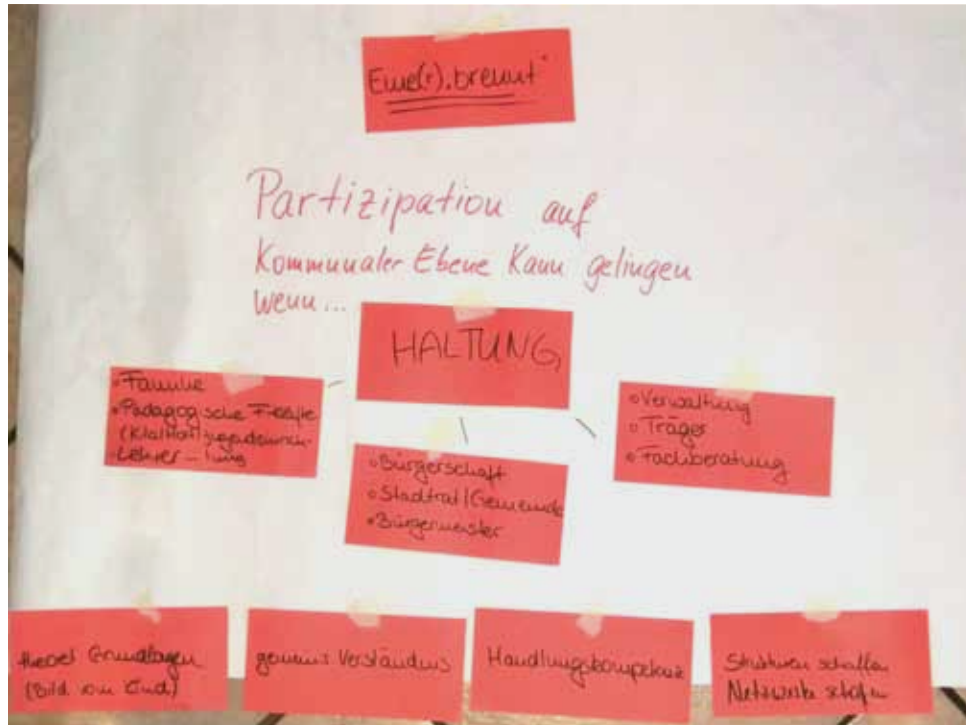 Eine(r) „brennt"
Partizipation auf
Kommunaler Ebene Kann gelingen
wenn...
HALTUNG
• Familie
• Pädagogische
Lehrer
• Bürgerschaft
• Stadtrat/Gemeinde
• Bürgermeister
• Verwaltung
• Träger
• Fachberatung
theoret Grundlagen
(Bild vom Kind)
gemeins Verständnis
Handlungskompetenz
Strukturen schaffen
Netzwerke schaffen